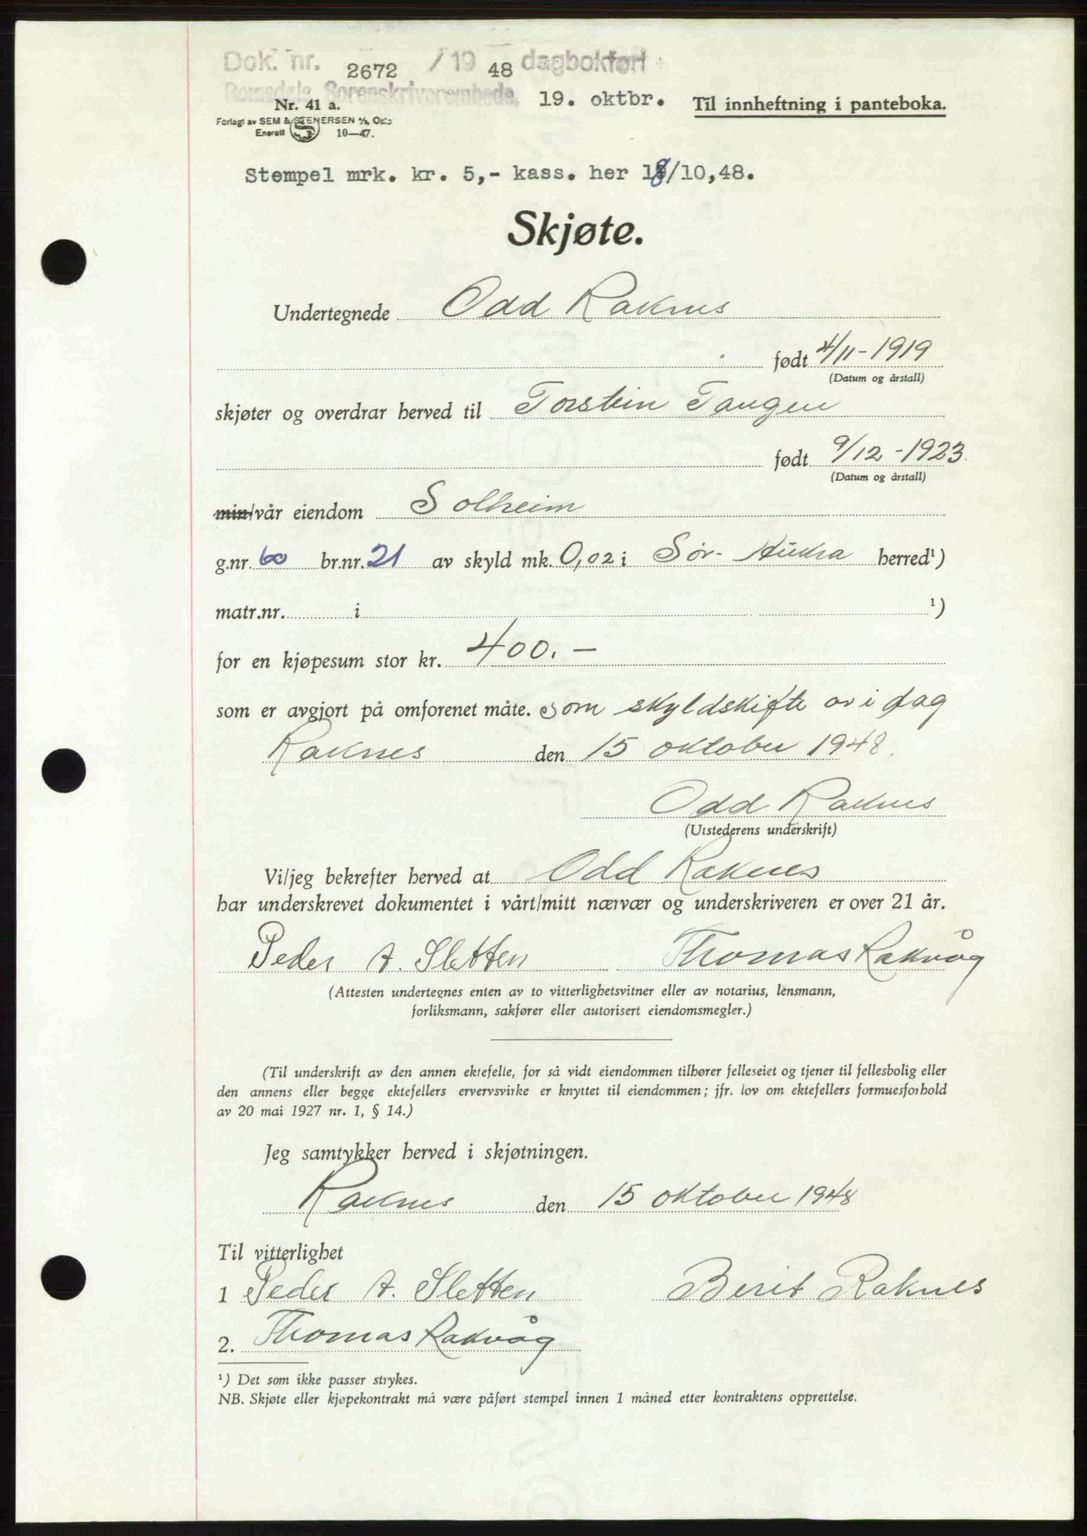 Dok. nr. 2672 /19 48 dagbokført
Romsdals Sorenskriverembede, 19. oktbr. Til innheftning i panteboka.
Nr. 41 a.
Forlagt av SEM & STENERSEN A/S, Oslo
Enerett 10—47.
Stempel mrk. kr. 5,- kass. her 18/10,48.
Skjøte.
Undertegnede Odd Raknes
født 4/11-1919
(Datum og årstall)
skjøter og overdrar herved til Torstein Tangen
født 9/12-1923
(Datum og årstall)
min/vår eiendom Solheim
g.nr. 60 br.nr. 21 av skyld mk. 0,02 i Sør-Aukra herred¹)
matr.nr. i ¹)
for en kjøpesum stor kr. 400.—
som er avgjort på omforenet måte. som skyldskifte av i dag
Raknes den 15 oktober 1948.
Odd Raknes
(Utstederens underskrift)
Vi/jeg bekrefter herved at Odd Raknes
har underskrevet dokumentet i vårt/mitt nærvær og underskriveren er over 21 år.
Peder A. Sletten Thomas Rakvåg
(Attesten undertegnes enten av to vitterlighetsvitner eller av notarius, lensmann,
forliksmann, sakfører eller autorisert eiendomsmegler.)
(Til underskrift av den annen ektefelle, for så vidt eiendommen tilhører felleseiet og tjener til fellesbolig eller
den annens eller begge ektefellers ervervsvirke er knyttet til eiendommen; jfr. lov om ektefellers formuesforhold
av 20 mai 1927 nr. 1, § 14.)
Jeg samtykker herved i skjøtningen.
Raknes den 15 oktober 1948
Til vitterlighet
1 Peder A. Sletten Berit Raknes
2. Thomas Rakvåg
¹) Det som ikke passer strykes.
NB. Skjøte eller kjøpekontrakt må være påført stempel innen 1 måned etter kontraktens opprettelse.